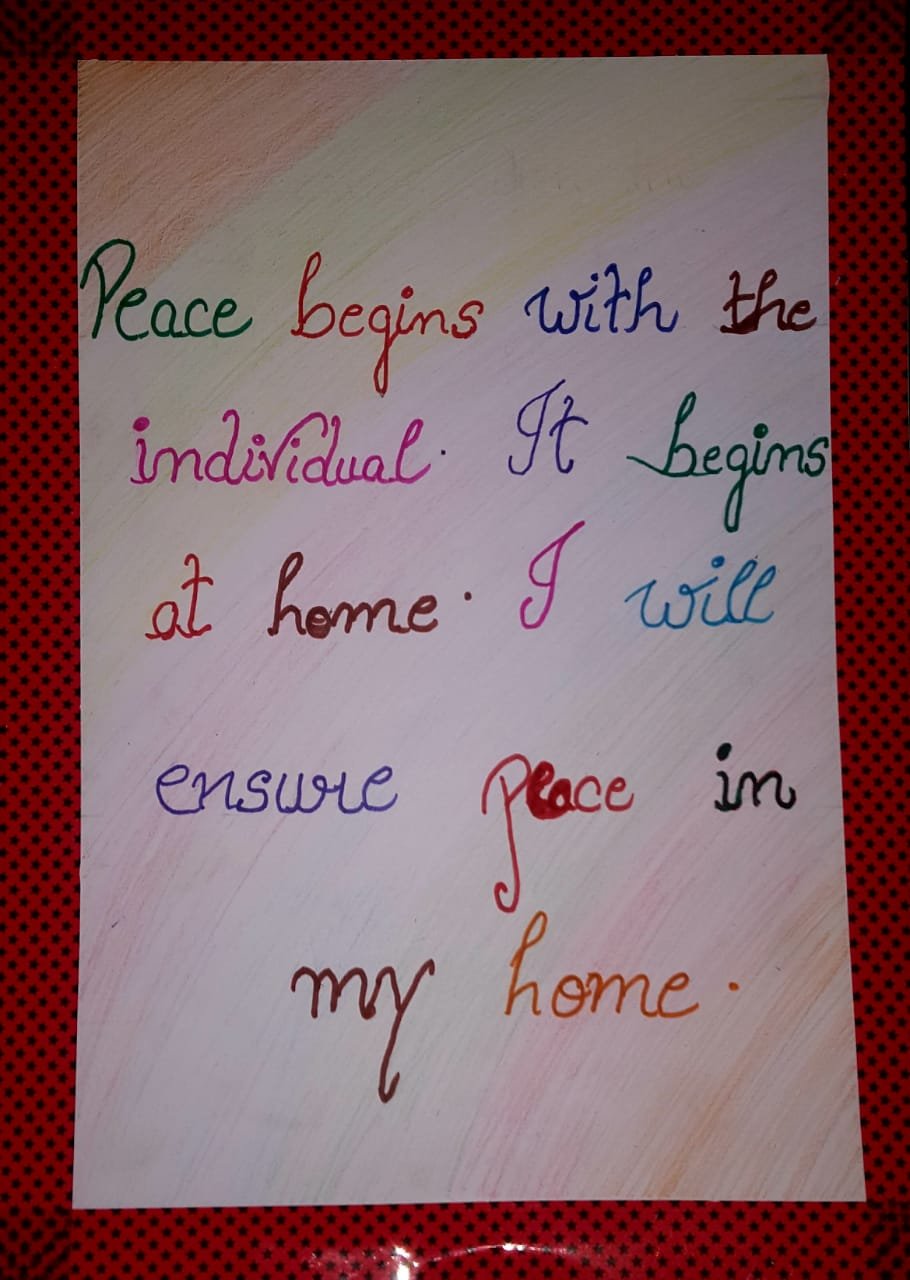 Peace begins with the
individual. It begins
at home. I will
ensure peace in
my home.